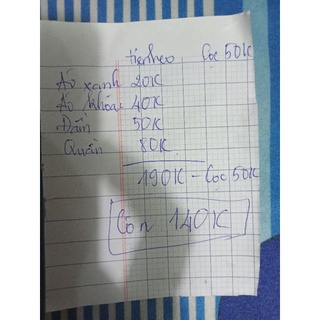 tiệnheo Cọc 50K
Áo xanh 20K
Áo khoác 40K
Đầm 50K
Quần 80K
190K - Cọc 50K
Còn 140K